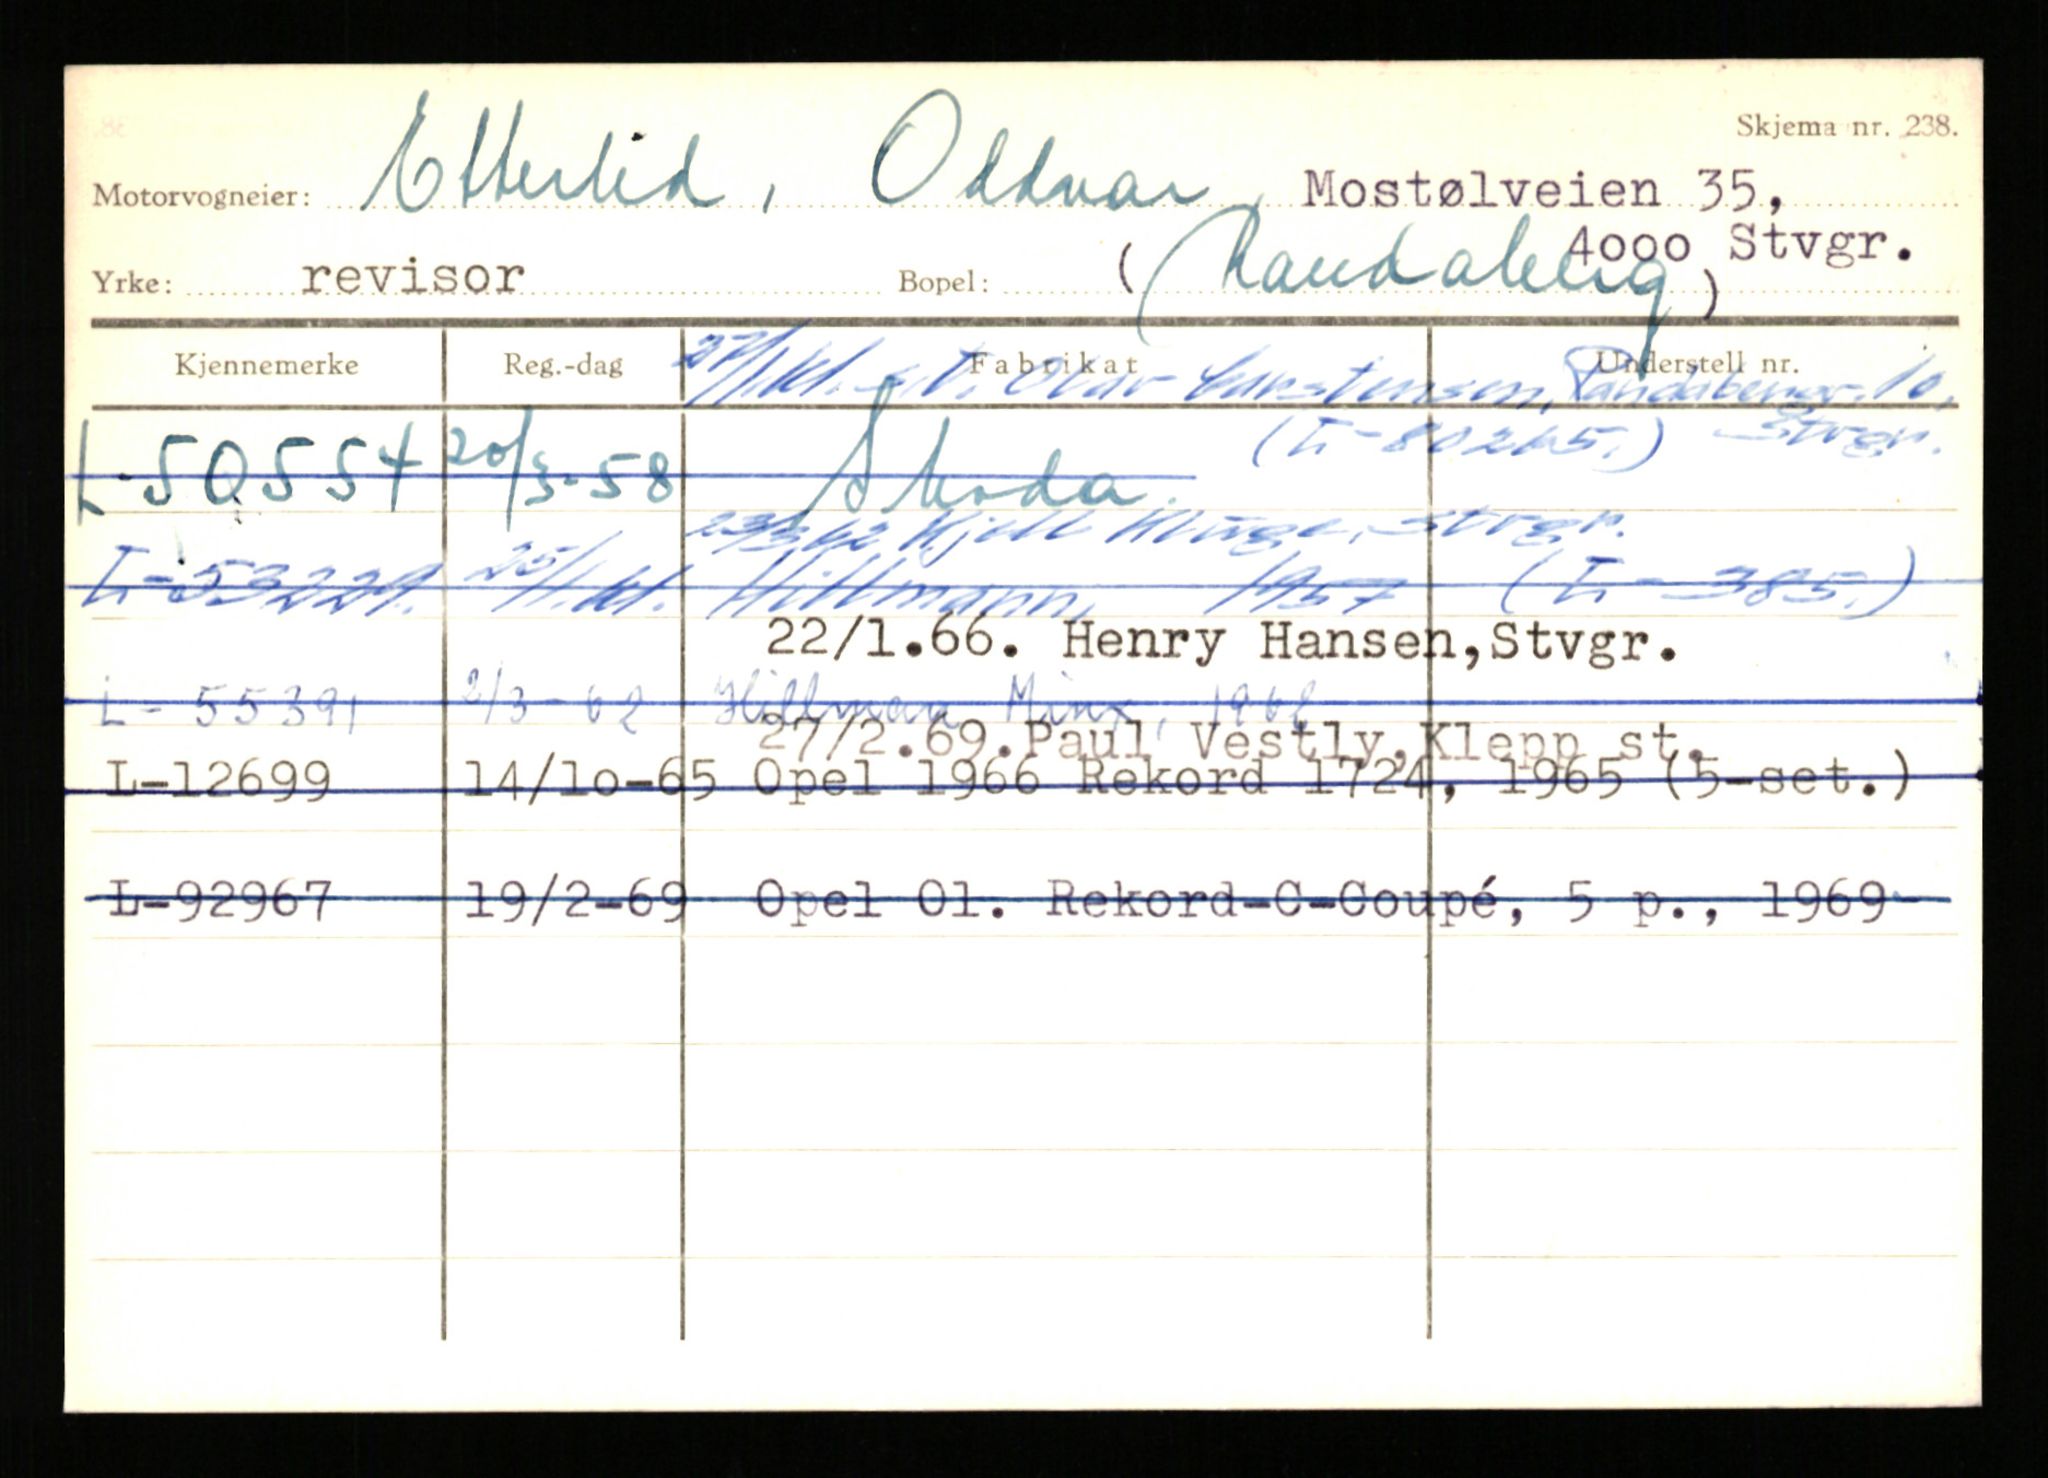 Skjema nr. 238.
Motorvogneier: Etterlid, Oddvar, Mostølveien 35,
4000 Stvgr.
Yrke: revisor Bopel: (Randaberg)
Kjennemerke Reg.-dag Fabrikat Understell nr.
27/1.61. s.t. Olav Carstensen, Randabergv. 10,
(L-80265.) Stvgr.
L-50554 20/3-58 Skoda
23/3.62 Kjell Hauge, Stvgr.
L-53229. 25/1.61. Hillmann, 1957 (L-385.)
22/1.66. Henry Hansen,Stvgr.
L-55391 2/3-62 Hillman Minx, 1962
27/2.69.Paul Vestly,Klepp st.
L-12699 14/1o-65 Opel 1966 Rekord 1724, 1965 (5-set.)
L-92967 19/2-69 Opel Ol. Rekord-C-Coupé, 5 p., 1969